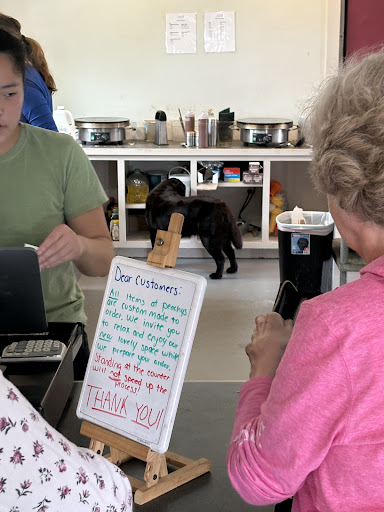 Dear Customers:
All items at peachys
are custom made to
order. We invite you
to relax and enjoy our
new lovely space while
we prepare your order.
Standing at the counter
will not speed up the
process!
THANK YOU!